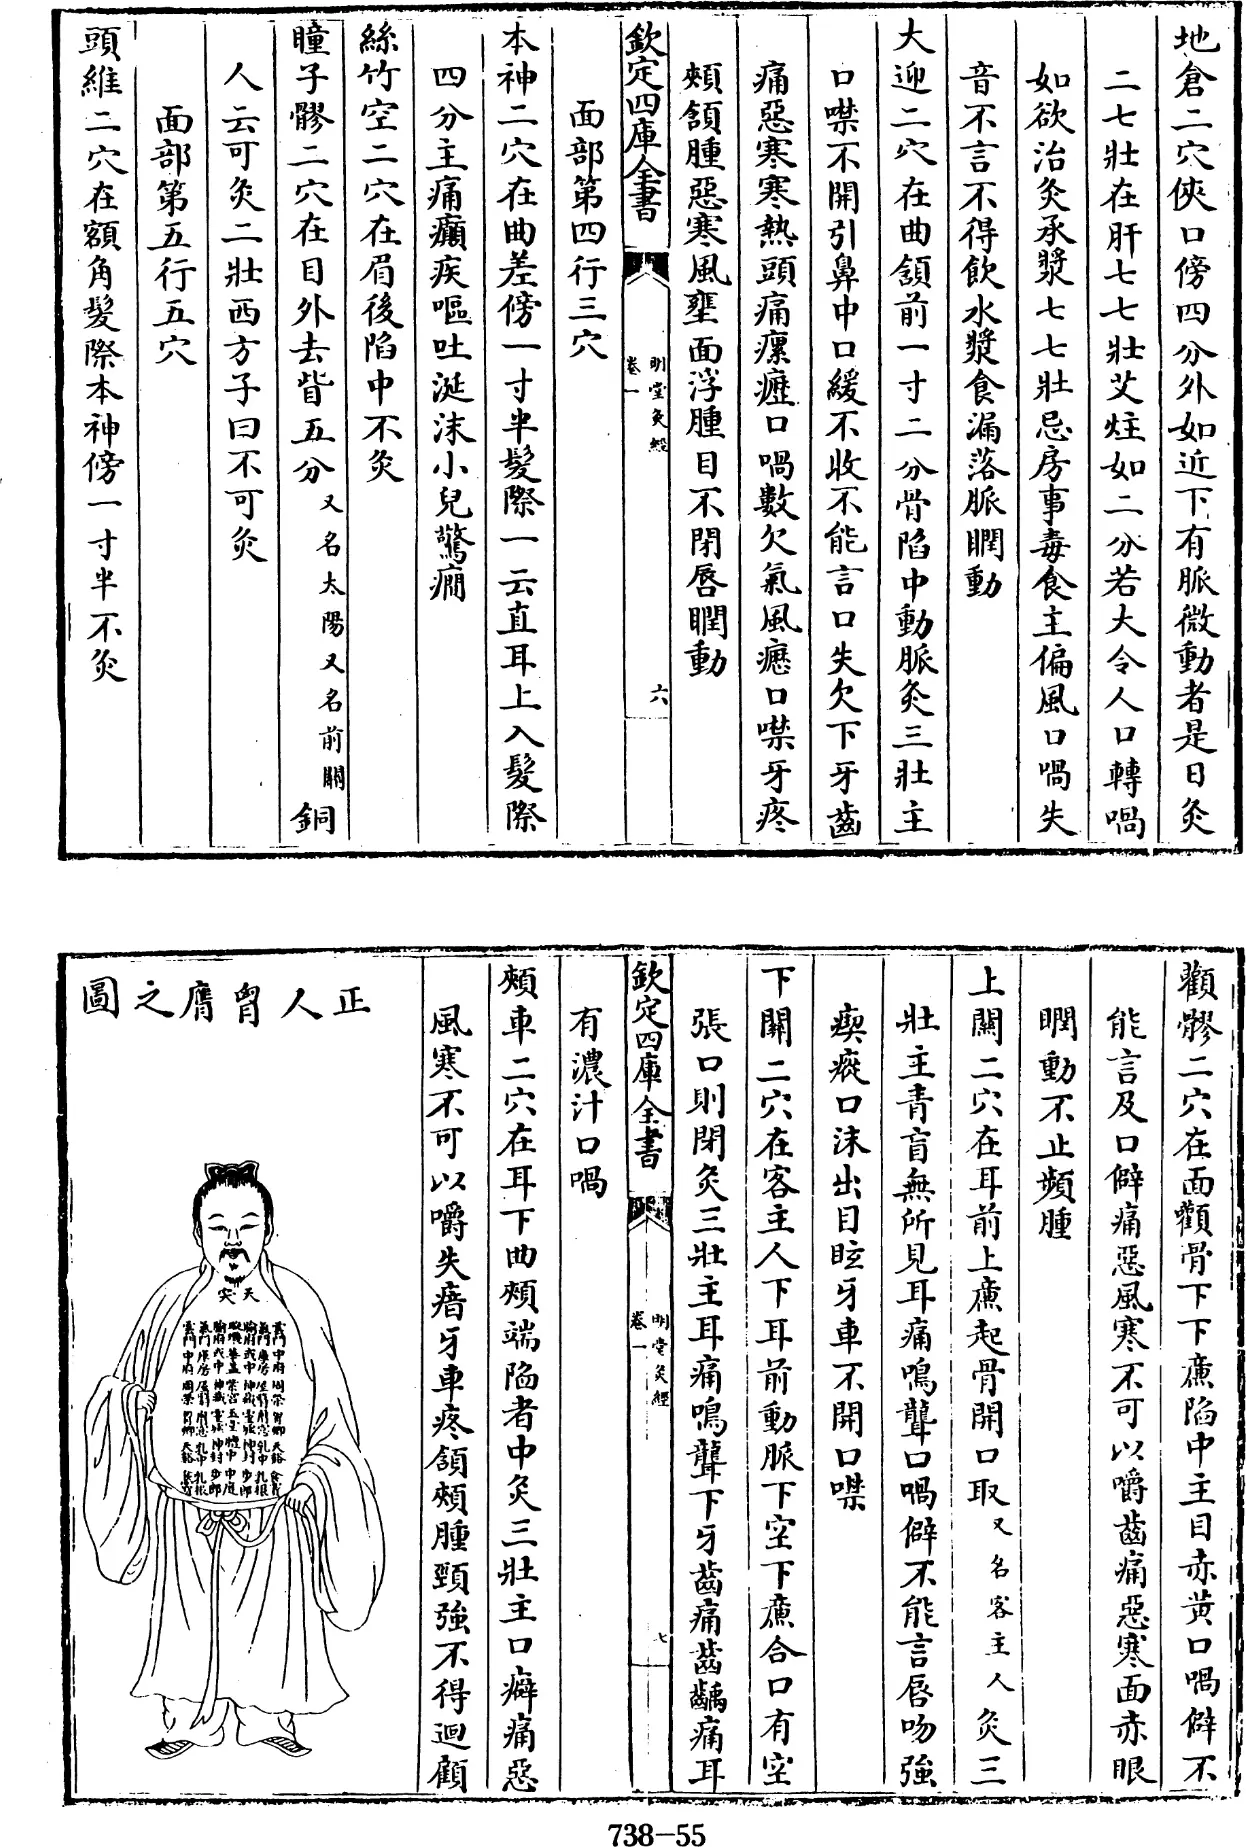 地倉二穴俠口傍四分外如近下有脈微動者是日灸
二七壯在肝七七壯艾炷如二分若大令人口轉喎
如欲治灸承漿七七壯忌房事毒食主偏風口喎失
音不言不得飲水漿食漏落脈瞤動
大迎二穴在曲頷前一寸二分骨陷中動脈灸三壯主
口噤不開引鼻中口緩不收不能言口失欠下牙齒
痛惡寒寒熱頭痛瘰癧口喎數欠氣風癋口噤牙疼
頰頷腫惡寒風壅面浮腫目不閉唇瞤動
欽定四庫全書
明堂灸經
卷一
六
面部第四行三穴
本神二穴在曲差傍一寸半髮際一云直耳上入髮際
四分主痛癲疾嘔吐涎沫小兒驚癇
絲竹空二穴在眉後陷中不灸
瞳子髎二穴在目外去眥五分又名太陽又名前關銅
人云可灸二壯西方子曰不可灸
面部第五行五穴
頭維二穴在額角髮際本神傍一寸半不灸
顴髎二穴在面顴骨下下廉陷中主目赤黃口喎僻不
能言及口僻痛惡風寒不可以嚼齒痛惡寒面赤眼
瞤動不止䪼腫
上關二穴在耳前上廉起骨開口取又名客主人灸三
壯主青盲無所見耳痛鳴聾口喎僻不能言唇吻強
瘈瘲口沫出目眩牙車不開口噤
下關二穴在客主人下耳前動脈下空下廉合口有空
張口則閉灸三壯主耳痛鳴聾下牙齒痛齒齲痛耳
有濃汁口喎
欽定四庫全書
明堂灸經
卷一
七
頰車二穴在耳下曲頰端陷者中灸三壯主口癖痛惡
風寒不可以嚼失瘖牙車疼頷頰腫頸強不得迴顧
正人胷膺之圖
天突
雲門 中府 周榮 胷鄉 天谿 食竇
氣門 庫房 屋翳 膺窓 乳中 乳根
俞府 彧中 神藏 靈墟 神封 步郎
璇璣 華蓋 紫宮 玉堂 膻中 中庭
俞府 彧中 神藏 靈墟 神封 步郎
氣門 庫房 屋翳 膺窓 乳中 乳根
雲門 中府 周榮 胷鄉 天谿 食竇
738-55